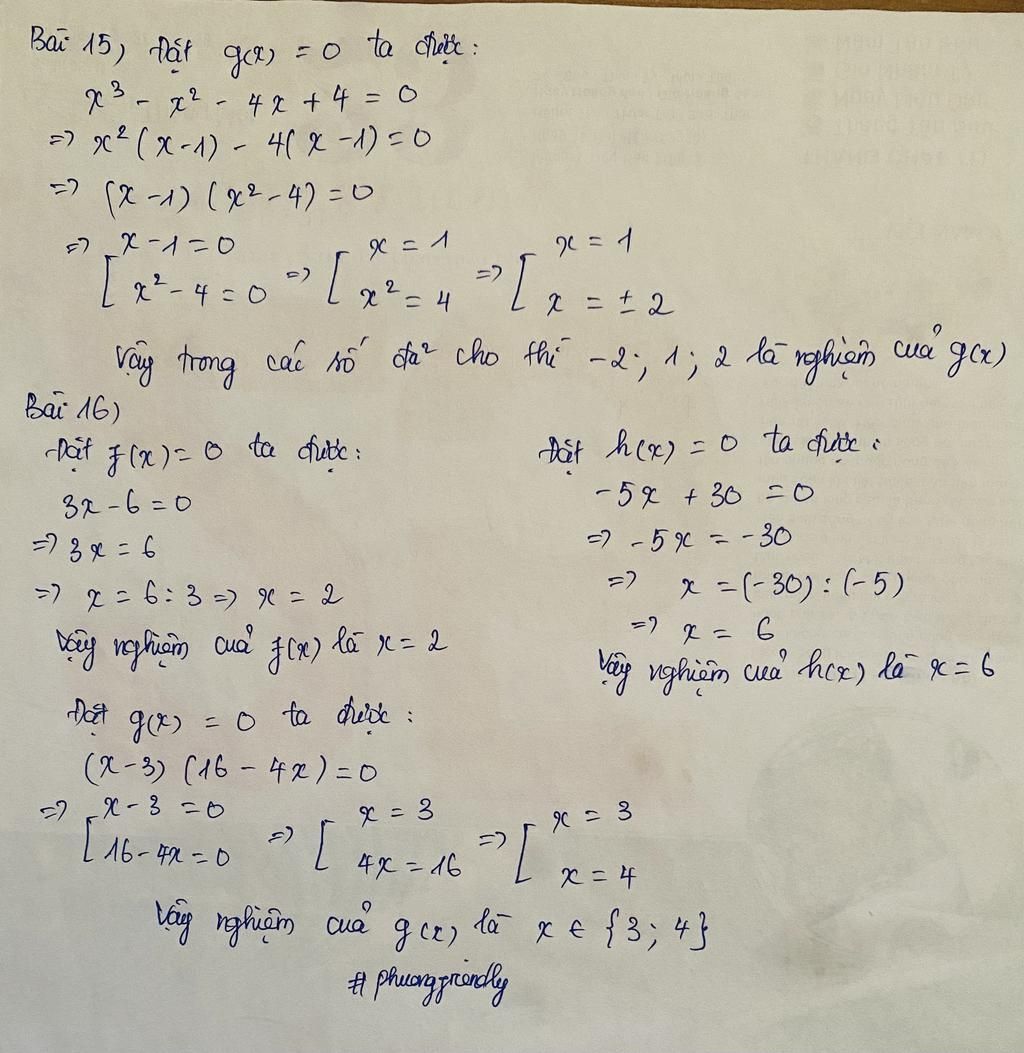 Bài 15) Đặt g(x) = 0 ta được:
x³ - x² - 4x + 4 = 0
=> x²(x-1) - 4(x-1) = 0
=> (x-1)(x²-4) = 0
=> [ x-1 = 0 => [ x = 1 => [ x = 1
x²-4 = 0 x² = 4 x = ± 2
Vậy trong các số đã cho thì -2; 1; 2 là nghiệm của g(x)
Bài 16)
Đặt f(x) = 0 ta được:
3x - 6 = 0
=> 3x = 6
=> x = 6 : 3 => x = 2
Vậy nghiệm của f(x) là x = 2
Đặt h(x) = 0 ta được:
-5x + 30 = 0
=> -5x = -30
=> x = (-30) : (-5)
=> x = 6
Vậy nghiệm của h(x) là x = 6
Đặt g(x) = 0 ta được:
(x-3)(16-4x) = 0
=> [ x-3 = 0 => [ x = 3 => [ x = 3
16-4x = 0 4x = 16 x = 4
Vậy nghiệm của g(x) là x ∈ {3; 4}
# phuongfriendly